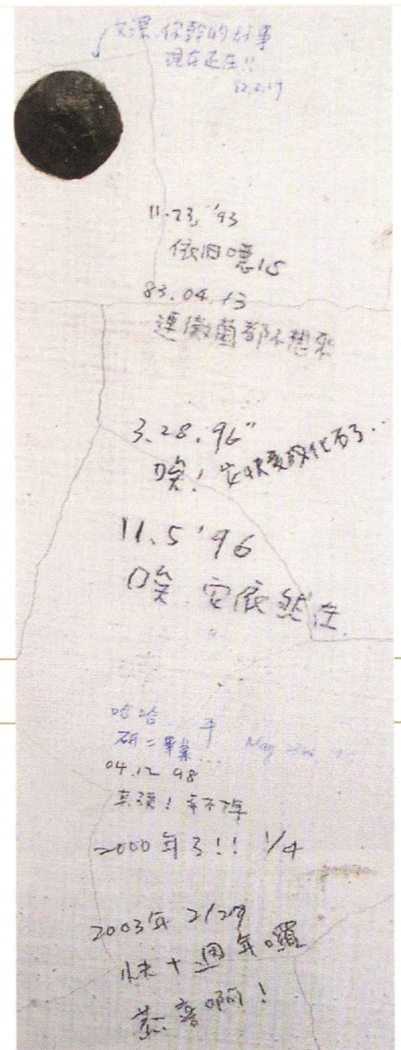 你幹的好事
現在還在!!
11.23, '93
依旧噁心
83.04.13
連黴菌都不想來
3.28.96"
唉!它快變成化石了...
11.5 '96
唉 它依然在
哈哈
研二畢業...
04.12 98
2000年了!! 1/4
2003年 2/27
快十週年囉
恭喜啊!